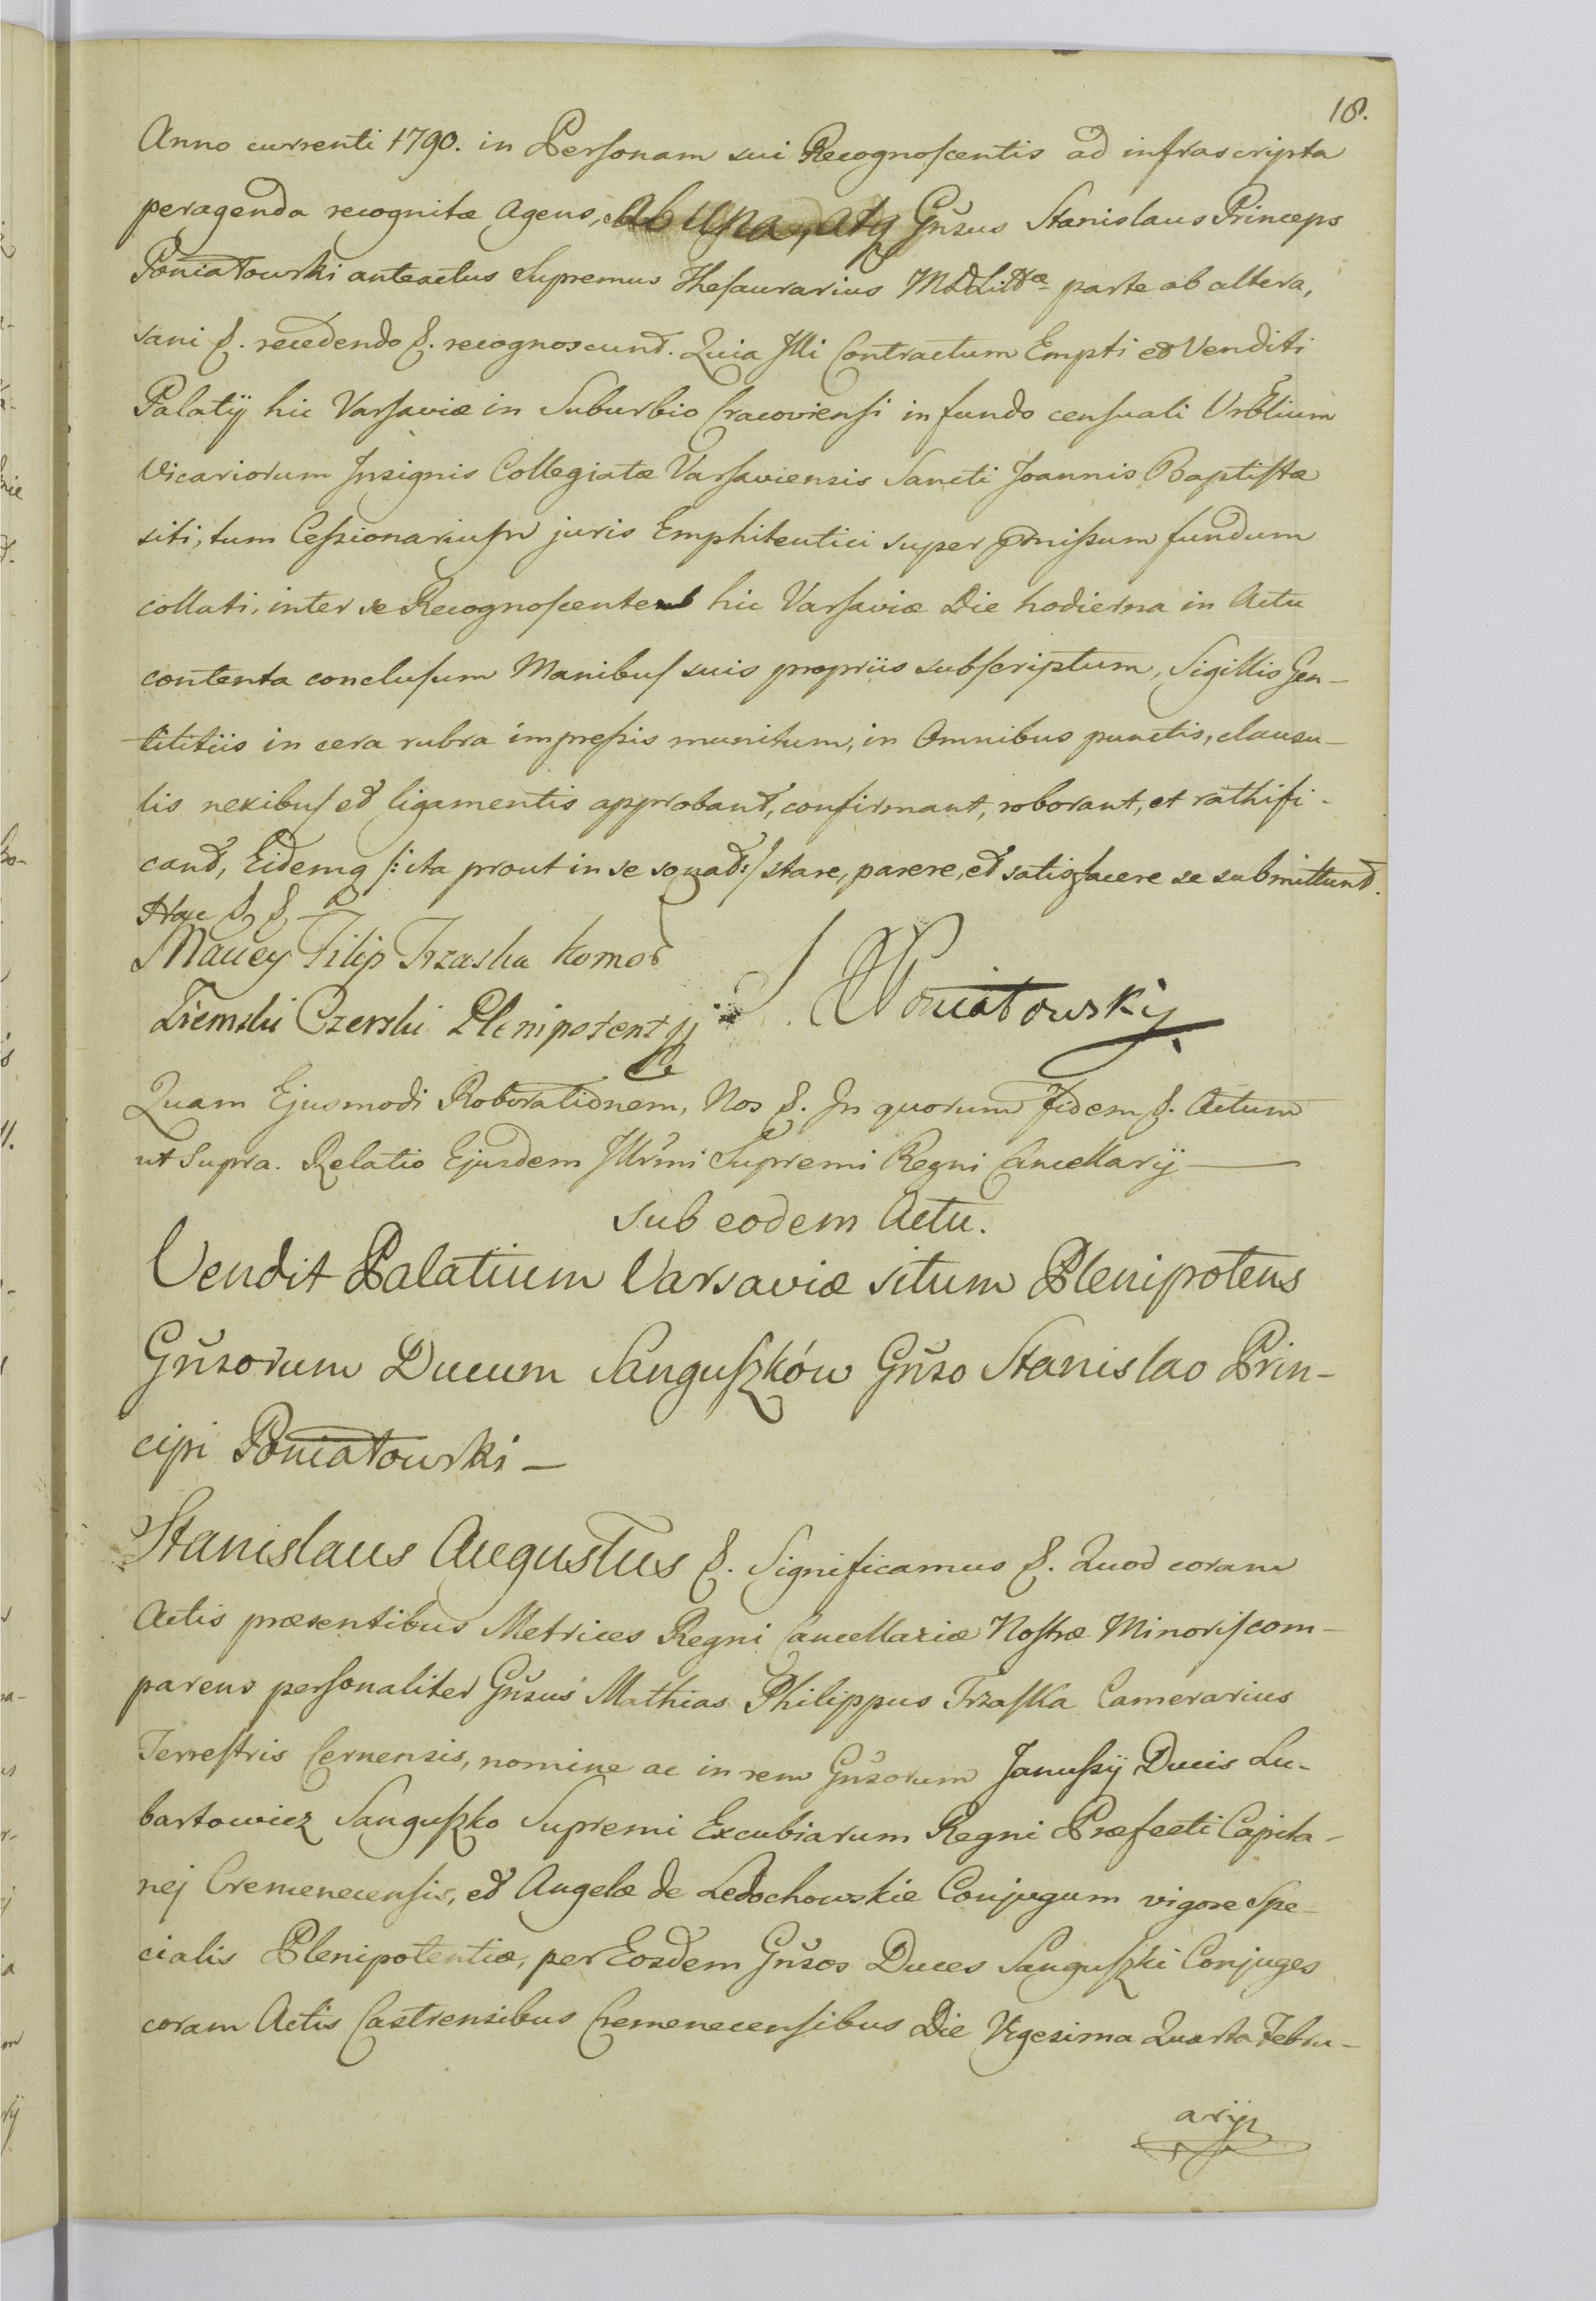 18.
Anno currenti 1790. in Personam sui Recognoscentis ad infrascripta
peragenda recognitæ Agens, ab una, atq Gn̄sus Stanislaus Princeps
Poniatowski anteactus Supremus Thesaurarius MDLittæ parte ab altera,
sani &. recedendo &. recognoscunt. Quia Illi Contractum Empti et Venditi
Palatij hic Varsaviæ in Suburbio Cracoviensi in fundo censuali Vrblium
Vicariorum Insignis Collegiatæ Varsaviensis Sancti Joannis Baptistæ
siti, tum Cessionarium juris Emphiteutici super prmissum fundum
collati, inter se Recognoscentes hic Varsaviæ Die hodierna in Actu
contenta conclusum Manibus suis propriis subscriptum, Sigillis Gen-
tilitiis in cera rubra impressis munitum, in Omnibus punctis, clausu-
lis nexibus et ligamentis approbant, confirmant, roborant, et rathifi-
cant, Eidemq /: ita prout in se sonat :/ stare, parere, et satisfacere se submittunt.
Hac &, &,
Maciey Filip Trzaska Komor
Ziemski Czerski Plenipotent
S. Poniatowski
Quam Ejusmodi Roborationem, Nos &. In quorum Fidem &. Actum
ut Supra. Relatio Ejusdem Illr̄mi Supremi Regni Cancellarij
Sub eodem Actu.
Vendit Palatium Varsaviæ situm Plenipotens
Gn̄sorum Ducum Sanguszków Gn̄so Stanislao Prin-
cipi Poniatowski -
Stanislaus Augustus &. Significamus &. Quod coram
Actis præsentibus Metrices Regni Cancellariæ Nostræ Minoris com-
parens personaliter Gn̄sus Mathias Philippus Trzaska Camerarius
Terrestris Cernensis, nomine ac in rem Gn̄sorum Janussij Ducis Lu-
bartowicz Sanguszko Supremi Excubiarum Regni Præfecti Capita-
nej Cremenecensis, et Angelæ de Ledochowskie Conjugum vigore Spe-
cialis Plenipotentiæ, per Eosdem Gn̄sos Duces Sanguszki Conjuges
coram Actis Castrensibus Cremenecensibus Die Vigesima Quarta Febru-
arij